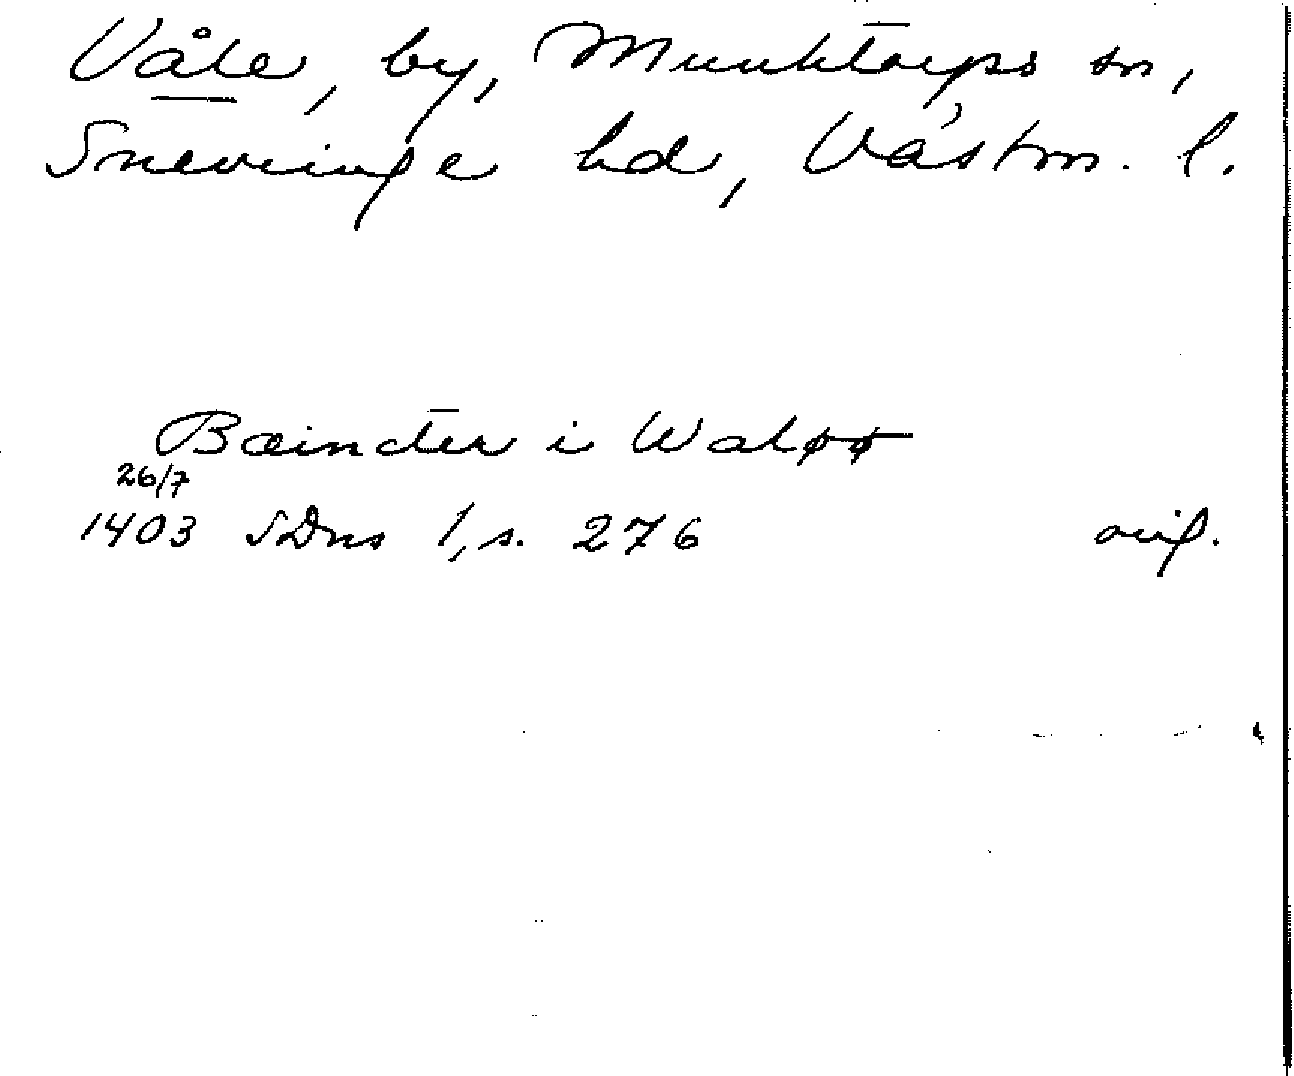 Våle, by, Munktorps sn,
Snevringe hd, Västm. l.
Bændter i Waløø
26/7
1403 SDns 1, s. 276 orig.